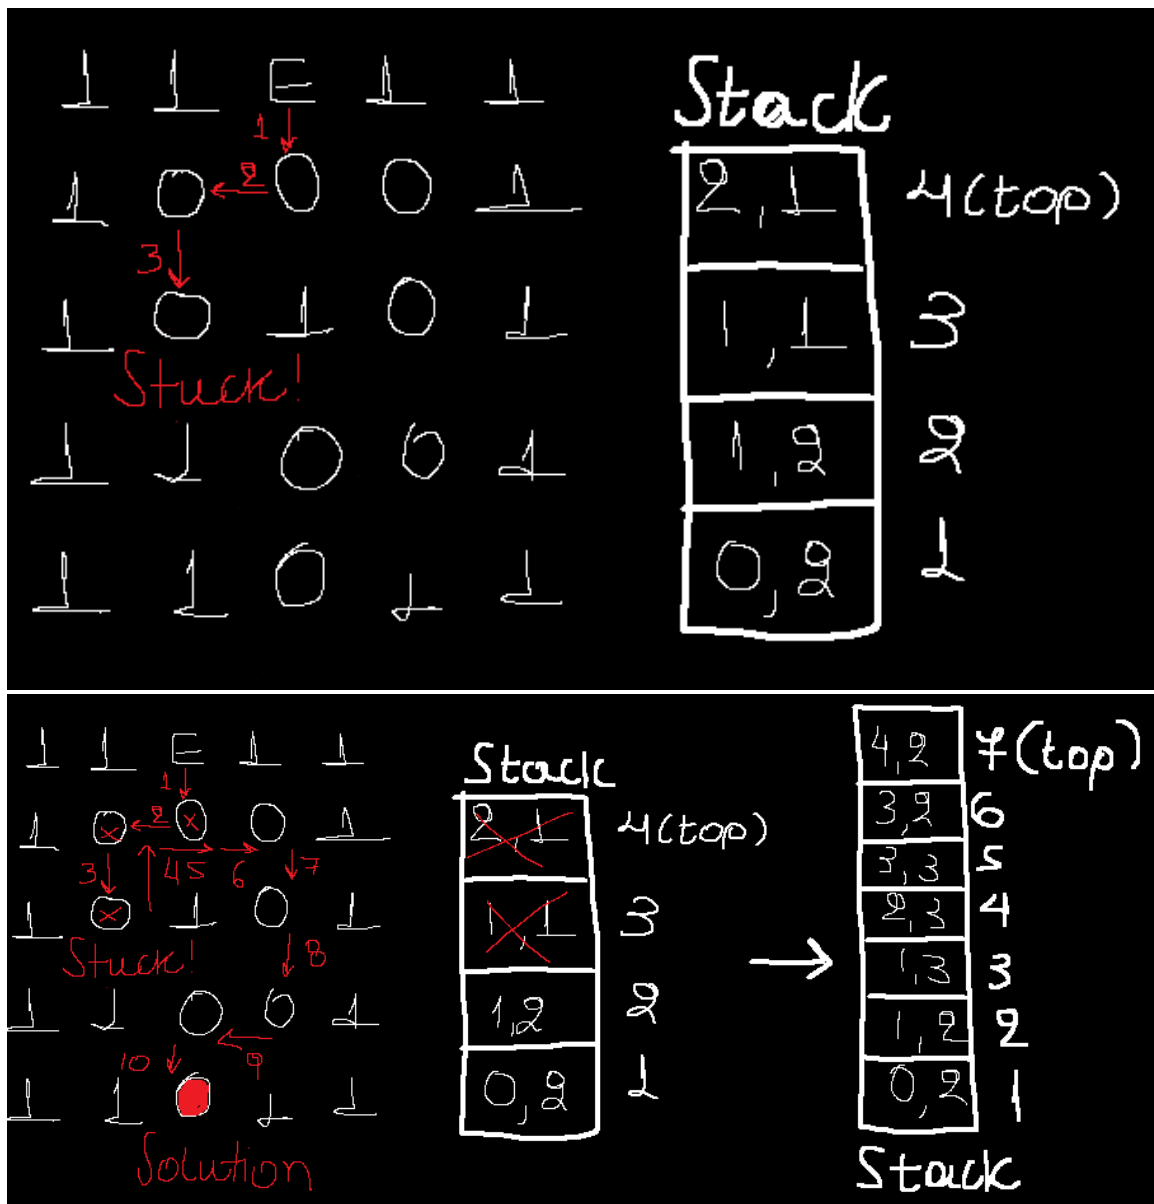 1 1 E 1 1
1
1 0 2 0 0 1
3
1 0 1 0 1
Stuck!
1 1 0 0 1
1 1 0 1 1
Stack
2,1 4(top)
1,1 3
1,2 2
0,2 1
1 1 E 1 1
1
1 0 2 0 0 1
3 4 5 6 7
1 0 1 0 1
Stuck! 8
1 1 0 0 1
10 9
1 1 1 1
Solution
Stack
2,1 4(top)
1,1 3
1,2 2
0,2 1
4,2 7(top)
3,2 6
3,3 5
2,3 4
1,3 3
1,2 2
0,2 1
Stack